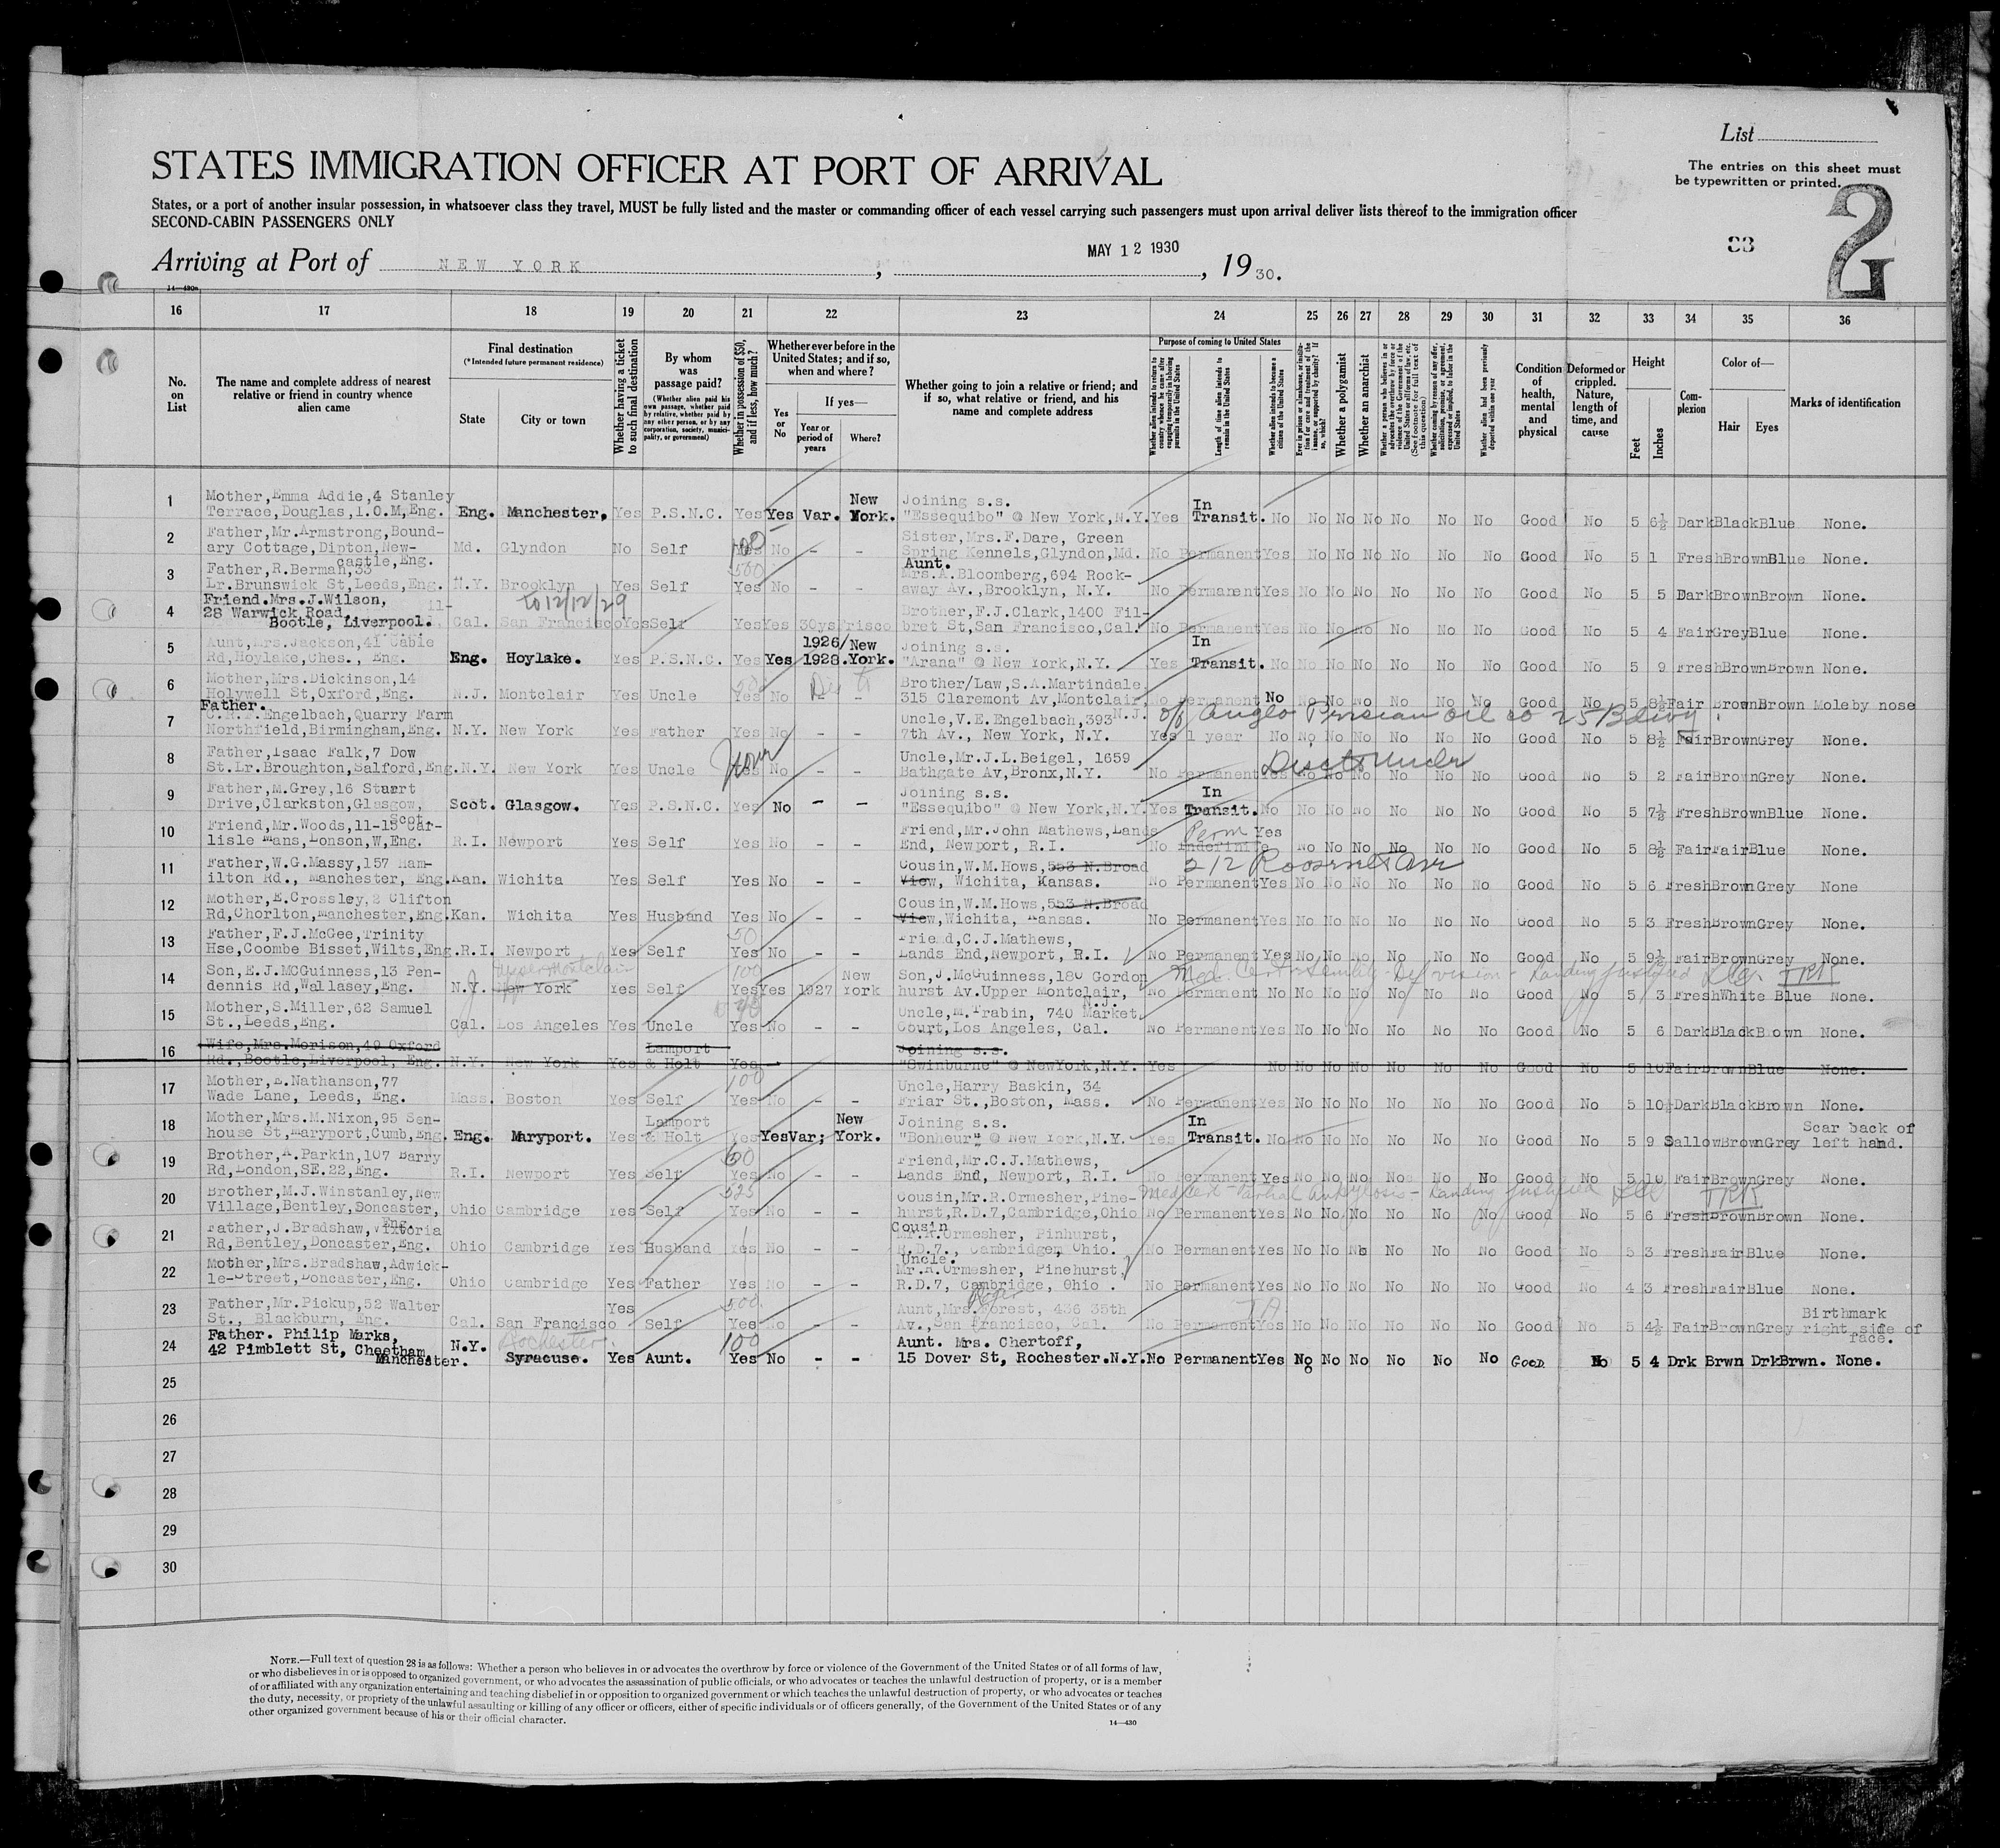 List
The entries on this sheet must
be typewritten or printed.
STATES IMMIGRATION OFFICER AT PORT OF ARRIVAL
2
States, or a port of another insular possession, in whatsoever class they travel, MUST be fully listed and the master or commanding officer of each vessel carrying such passengers must upon arrival deliver lists thereof to the immigration officer
SECOND-CABIN PASSENGERS ONLY
Arriving at Port of NEW YORK, MAY 12 1930, 1930.
16 17 18 19 20 21 22 23 24 25 26 27 28 29 30 31 32 33 34 35 36
No. on List
The name and complete address of nearest relative or friend in country whence alien came
Final destination
(*Intended future permanent residence)
State
City or town
Whether having a ticket to such final destination
By whom was passage paid?
(Whether alien paid his own passage, whether paid by relative, whether paid by any other person, or by any corporation, society, municipality, or government)
Whether in possession of $50, and if less, how much?
Whether ever before in the United States; and if so, when and where?
Yes or No
If yes—
Year or period of years
Where?
Whether going to join a relative or friend; and if so, what relative or friend, and his name and complete address
Purpose of coming to United States
Length of time alien intends to remain in the United States
Whether alien intends to become a citizen of the United States
Whether a polygamist
Whether an anarchist
Condition of health, mental and physical
Deformed or crippled. Nature, length of time, and cause
Height
Feet
Inches
Complexion
Color of—
Hair
Eyes
Marks of identification
1 Mother,Emma Addie,4 Stanley
Terrace,Douglas,I.O.M,Eng. Eng. Manchester. Yes P.S.N.C. Yes Yes Var. New York. Joining s.s. "Essequibo" @ New York,N.Y. Yes In Transit. No No No No No No No Good No 5 6½ Dark Black Blue None.
2 Father,Mr.Armstrong,Bound-
ary Cottage,Dipton,New-
castle,Eng. Md. Glyndon No Self Yes 100 No - - Sister,Mrs.F.Dare, Green Spring Kennels,Glyndon,Md. No Permanent Yes No No No No No No Good No 5 1 Fresh Brown Blue None.
3 Father,R.Berman,33
Lr.Brunswick St,Leeds,Eng. N.Y. Brooklyn Yes Self Yes 500 No - - Aunt. Mrs.A.Bloomberg,694 Rock-
away Av.,Brooklyn, N.Y. No Permanent Yes No No No No No No Good No 5 5 Dark Brown Brown None.
4 Friend.Mrs.J.Wilson,
28 Warwick Road,
Bootle, Liverpool. Cal. San Francisco to 12/12/29 Yes Self Yes Yes 30ys Frisco Brother,F.J.Clark,1400 Fil-
bret St,San Francisco,Cal. No Permanent Yes No No No No No No Good No 5 4 Fair Grey Blue None.
5 Aunt,Mrs.Jackson,41 Cable
Rd,Hoylake,Ches., Eng. Eng. Hoylake. Yes P.S.N.C. Yes Yes 1926/ 1928. New York. Joining s.s. "Arana" @ New York,N.Y. Yes In Transit. No No No No No No No Good No 5 9 Fresh Brown Brown None.
6 Mother,Mrs.Dickinson,14
Holywell St,Oxford,Eng. N.J. Montclair Yes Uncle Yes No - Brother/Law,S.A.Martindale,
315 Claremont Av,Montclair, N.J. No Permanent No No No No No No No Good No 5 8½ Fair Brown Brown Mole by nose
7 Father.
C.R.F.Engelbach,Quarry Farm
Northfield,Birmingham,Eng. N.Y. New York Yes Father Yes No - - Uncle,V.E.Engelbach,393
7th Av., New York, N.Y. c/o Anglo Persian Oil Co 25 Bdwy. Yes 1 year No No No No No No No Good No 5 8½ Fair Brown Grey None.
8 Father,Isaac Falk,7 Dow
St.Lr.Broughton,Salford,Eng. N.Y. New York Yes Uncle Yes No - - Uncle,Mr.J.L.Beigel, 1659
Bathgate Av,Bronx,N.Y. No Permanent Yes No No No No No No Good No 5 2 Fair Brown Grey None.
9 Father,M.Grey,16 Stuart
Drive,Clarkston,Glasgow,
Scot. Scot. Glasgow. Yes P.S.N.C. Yes No - - Joining s.s. "Essequibo" @ New York,N.Y. Yes In Transit. No No No No No No No Good No 5 7½ Fresh Brown Blue None.
10 Friend,Mr.Woods,11-15 Car-
lisle Mans,Lonson,W,Eng. R.I. Newport Yes Self Yes No - - Friend,Mr.John Mathews,Lands
End, Newport, R.I. No Indefinite Perm Yes No No No No No No Good No 5 8½ Fair Fair Blue None.
11 Father,W.G.Massy,157 Ham-
ilton Rd., Manchester, Eng. Kan. Wichita Yes Self Yes No - - Cousin,W.M.Hows,553 N.Broad
View, Wichita, Kansas. 212 Roosevelt Ave No Permanent Yes No No No No No No Good No 5 6 Fresh Brown Grey None
12 Mother,E.Crossley,2 Clifton
Rd,Chorlton,Manchester,Eng. Kan. Wichita Yes Husband Yes No - - Cousin,W.M.Hows,553 N.Broad
View,Wichita, Kansas. No Permanent Yes No No No No No No Good No 5 3 Fresh Brown Grey None.
13 Father,F.J.McGee,Trinity
Hse,Coombe Bisset,Wilts,Eng. R.I. Newport Yes Self Yes 50 No - - Friend,C.J.Mathews,
Lands End,Newport, R.I. No Permanent Yes No No No No No No Good No 5 9½ Fair Brown Grey None.
14 Son,E.J.McGuinness,13 Pen-
dennis Rd,Wallasey,Eng. N.Y. New York Upper Montclair Yes Self Yes 100 Yes 1927 New York Son,J.McGuinness,180 Gordon
hurst Av.Upper Montclair, N.J. Med. Cert. Senility - Def vision - Landing justified No Permanent No No No No No No No Good No 5 3 Fresh White Blue None.
15 Mother,S.Miller,62 Samuel
St.,Leeds,Eng. Cal. Los Angeles Yes Uncle Yes No - - Uncle,M.Prabin, 740 Market
Court,Los Angeles, Cal. No Permanent Yes No No No No No No Good No 5 6 Dark Black Brown None.
16 Wife,Mrs.Morison,49 Oxford
Rd.,Bootle,Liverpool, Eng. N.Y. New York Yes Lamport & Holt Yes Joining s.s. "Swinburne" @ NewYork,N.Y. Yes No No No No No No No Good No 5 10 Fair Brown Blue None.
17 Mother,E.Nathanson,77
Wade Lane, Leeds, Eng. Mass. Boston Yes Self Yes 100 No - - Uncle,Harry Baskin, 34
Friar St.,Boston, Mass. No Permanent Yes No No No No No No Good No 5 10½ Dark Black Brown None.
18 Mother,Mrs.M.Nixon,95 Sen-
house St,Maryport,Cumb,Eng. Eng. Maryport. Yes Lamport & Holt Yes Yes Var; New York. Joining s.s. "Bonheur" @ New York,N.Y. Yes In Transit. No No No No No No No Good No 5 9 Sallow Brown Grey Scar back of left hand.
19 Brother,A.Parkin,107 Barry
Rd,London,SE.22,Eng. R.I. Newport Yes Self Yes No - - Friend,Mr.C.J.Mathews,
Lands End, Newport, R.I. No Permanent Yes No No No No No No Good No 5 10 Fair Brown Grey None.
20 Brother,M.J.Winstanley,New
Village,Bentley,Doncaster,
Eng. Ohio Cambridge Yes Self Yes 525 No - - Cousin,Mr.R.Ormesher,Pine-
hurst,R.D.7,Cambridge,Ohio Med Cert - Partial Ankylosis - Landing justified No Permanent Yes No No No No No No Good No 5 6 Fresh Brown Brown None.
21 Father,J.Bradshaw,Victoria
Rd,Bentley,Doncaster,Eng. Ohio Cambridge Yes Husband Yes No - - Cousin Mr.R.Ormesher, Pinhurst,
R.D.7., Cambridge, Ohio. No Permanent Yes No No No No No No Good No 5 3 Fresh Fair Blue None.
22 Mother,Mrs.Bradshaw,Adwick-
le-Street,Doncaster,Eng. Ohio Cambridge Yes Father Yes No - - Uncle. Mr.R.Ormesher, Pinehurst,
R.D.7, Cambridge, Ohio. No Permanent Yes No No No No No No Good No 4 3 Fresh Fair Blue None.
23 Father,Mr.Pickup,52 Walter
St., Blackburn, Eng. Cal. San Francisco Yes Self Yes 500 No - - Aunt,Mrs.Forest, 436 35th
Av.,San Francisco, Cal. No Permanent Yes No No No No No No Good No 5 4½ Fair Brown Grey Birthmark right side of face.
24 Father. Philip Marks,
42 Pimblett St, Cheetham
Manchester. N.Y. Rochester Syracuse. Yes Aunt. Yes 100 No - - Aunt. Mrs. Chertoff,
15 Dover St, Rochester.N.Y. No Permanent Yes No No No No No No Good No 5 4 Drk Brwn DrkBrwn. None.
25
26
27
28
29
30
NOTE.—Full text of question 28 is as follows: Whether a person who believes in or advocates the overthrow by force or violence of the Government of the United States or of all forms of law,
or who disbelieves in or is opposed to organized government, or who advocates the assassination of public officials, or who advocates or teaches the unlawful destruction of property, or is a member
of or affiliated with any organization entertaining and teaching disbelief in or opposition to organized government or which teaches the unlawful destruction of property, or who advocates or teaches
the duty, necessity, or propriety of the unlawful assaulting or killing of any officer or officers, either of specific individuals or of officers generally, of the Government of the United States or of any
other organized government because of his or their official character.
14—430